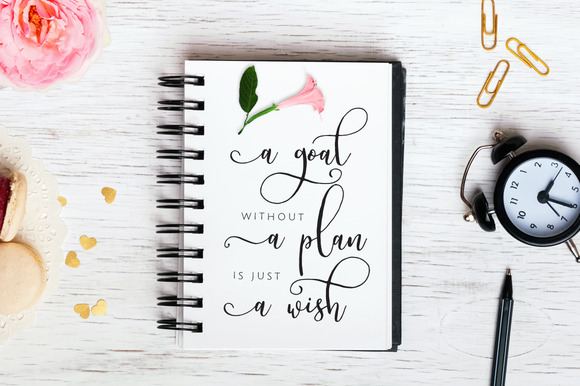 a goal
WITHOUT
a plan
IS JUST
a wish
12
1
2
3
4
5
6
7
8
9
10
11